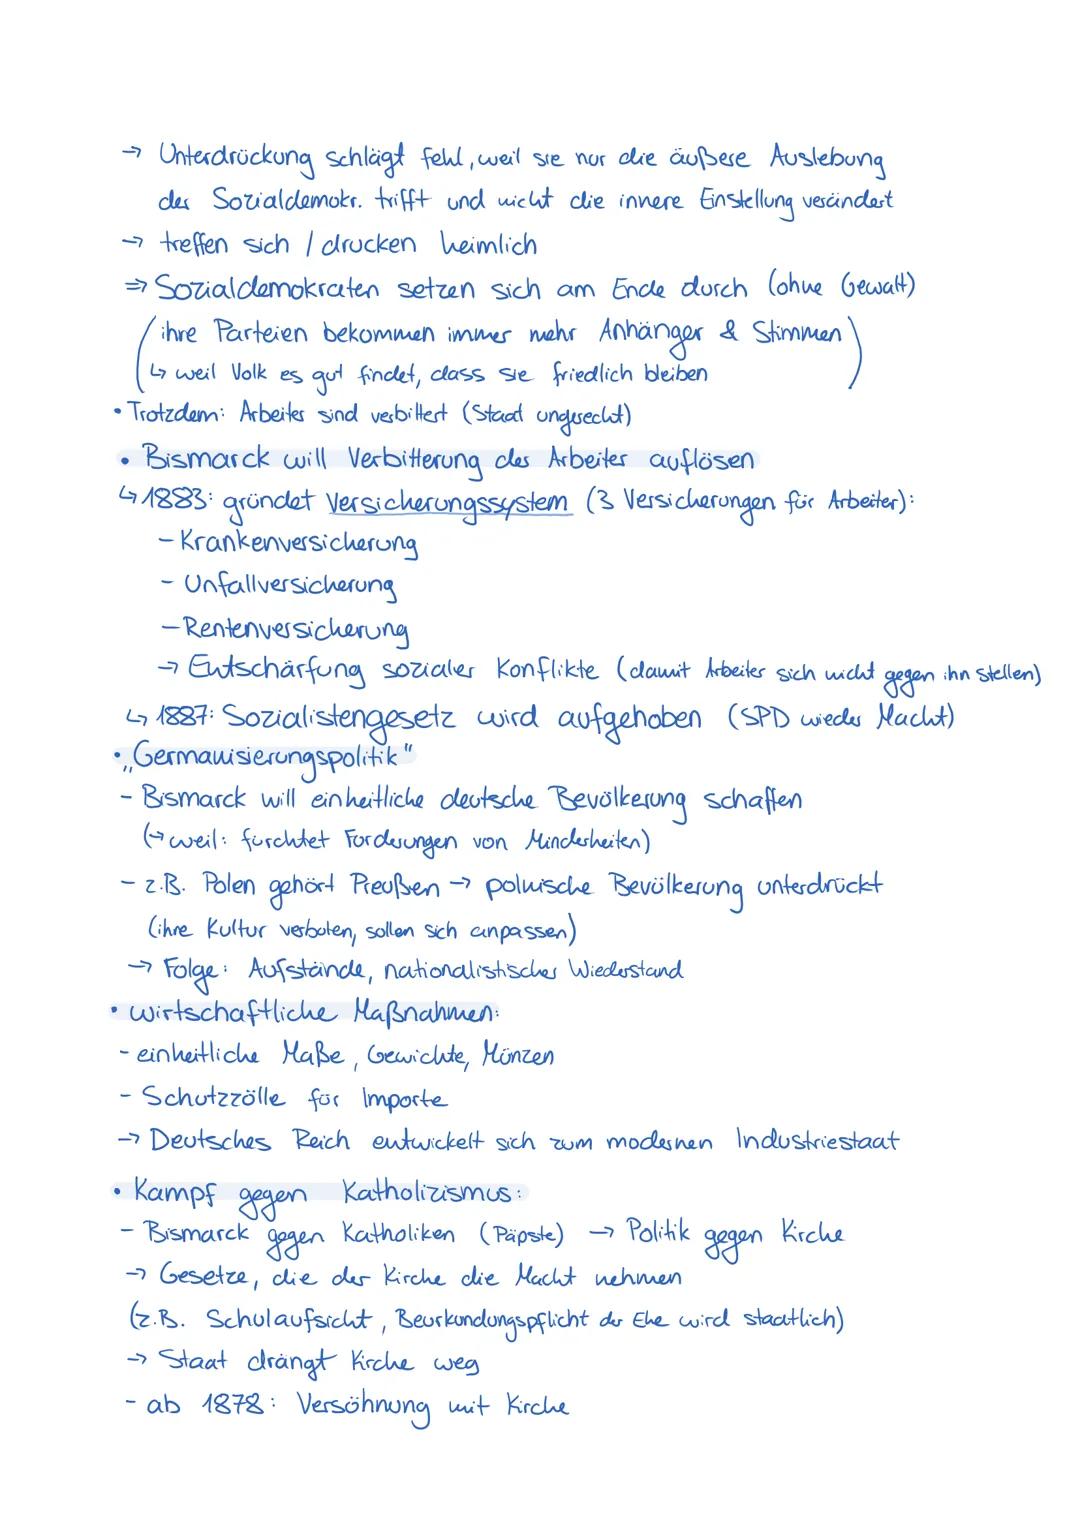 → Unterdrückung schlägt fehl, weil sie nur die äußere Auslebung
der Sozialdemokr. trifft und nicht die innere Einstellung verändert
→ treffen sich / drucken heimlich
⇒ Sozialdemokraten setzen sich am Ende durch (ohne Gewalt)
(ihre Parteien bekommen immer mehr Anhänger & Stimmen
↳ weil Volk es gut findet, dass sie friedlich bleiben)
• Trotzdem: Arbeiter sind verbittert (Staat ungerecht)
• Bismarck will Verbitterung der Arbeiter auflösen
↳ 1883: gründet Versicherungssystem (3 Versicherungen für Arbeiter):
- Krankenversicherung
- Unfallversicherung
- Rentenversicherung
→ Entschärfung sozialer Konflikte (damit Arbeiter sich nicht gegen ihn stellen)
↳ 1887: Sozialistengesetz wird aufgehoben (SPD wieder Macht)
• „Germanisierungspolitik"
- Bismarck will einheitliche deutsche Bevölkerung schaffen
(↪ weil: fürchtet Forderungen von Minderheiten)
- z.B. Polen gehört Preußen → polnische Bevölkerung unterdrückt
(ihre Kultur verboten, sollen sich anpassen)
→ Folge: Aufstände, nationalistischer Wiederstand
• wirtschaftliche Maßnahmen:
- einheitliche Maße, Gewichte, Münzen
- Schutzzölle für Importe
→ Deutsches Reich entwickelt sich zum modernen Industriestaat
• Kampf gegen Katholizismus:
- Bismarck gegen Katholiken (Päpste) → Politik gegen Kirche
→ Gesetze, die der Kirche die Macht nehmen
(z.B. Schulaufsicht, Beurkundungspflicht der Ehe wird staatlich)
→ Staat drängt Kirche weg
- ab 1878: Versöhnung mit Kirche